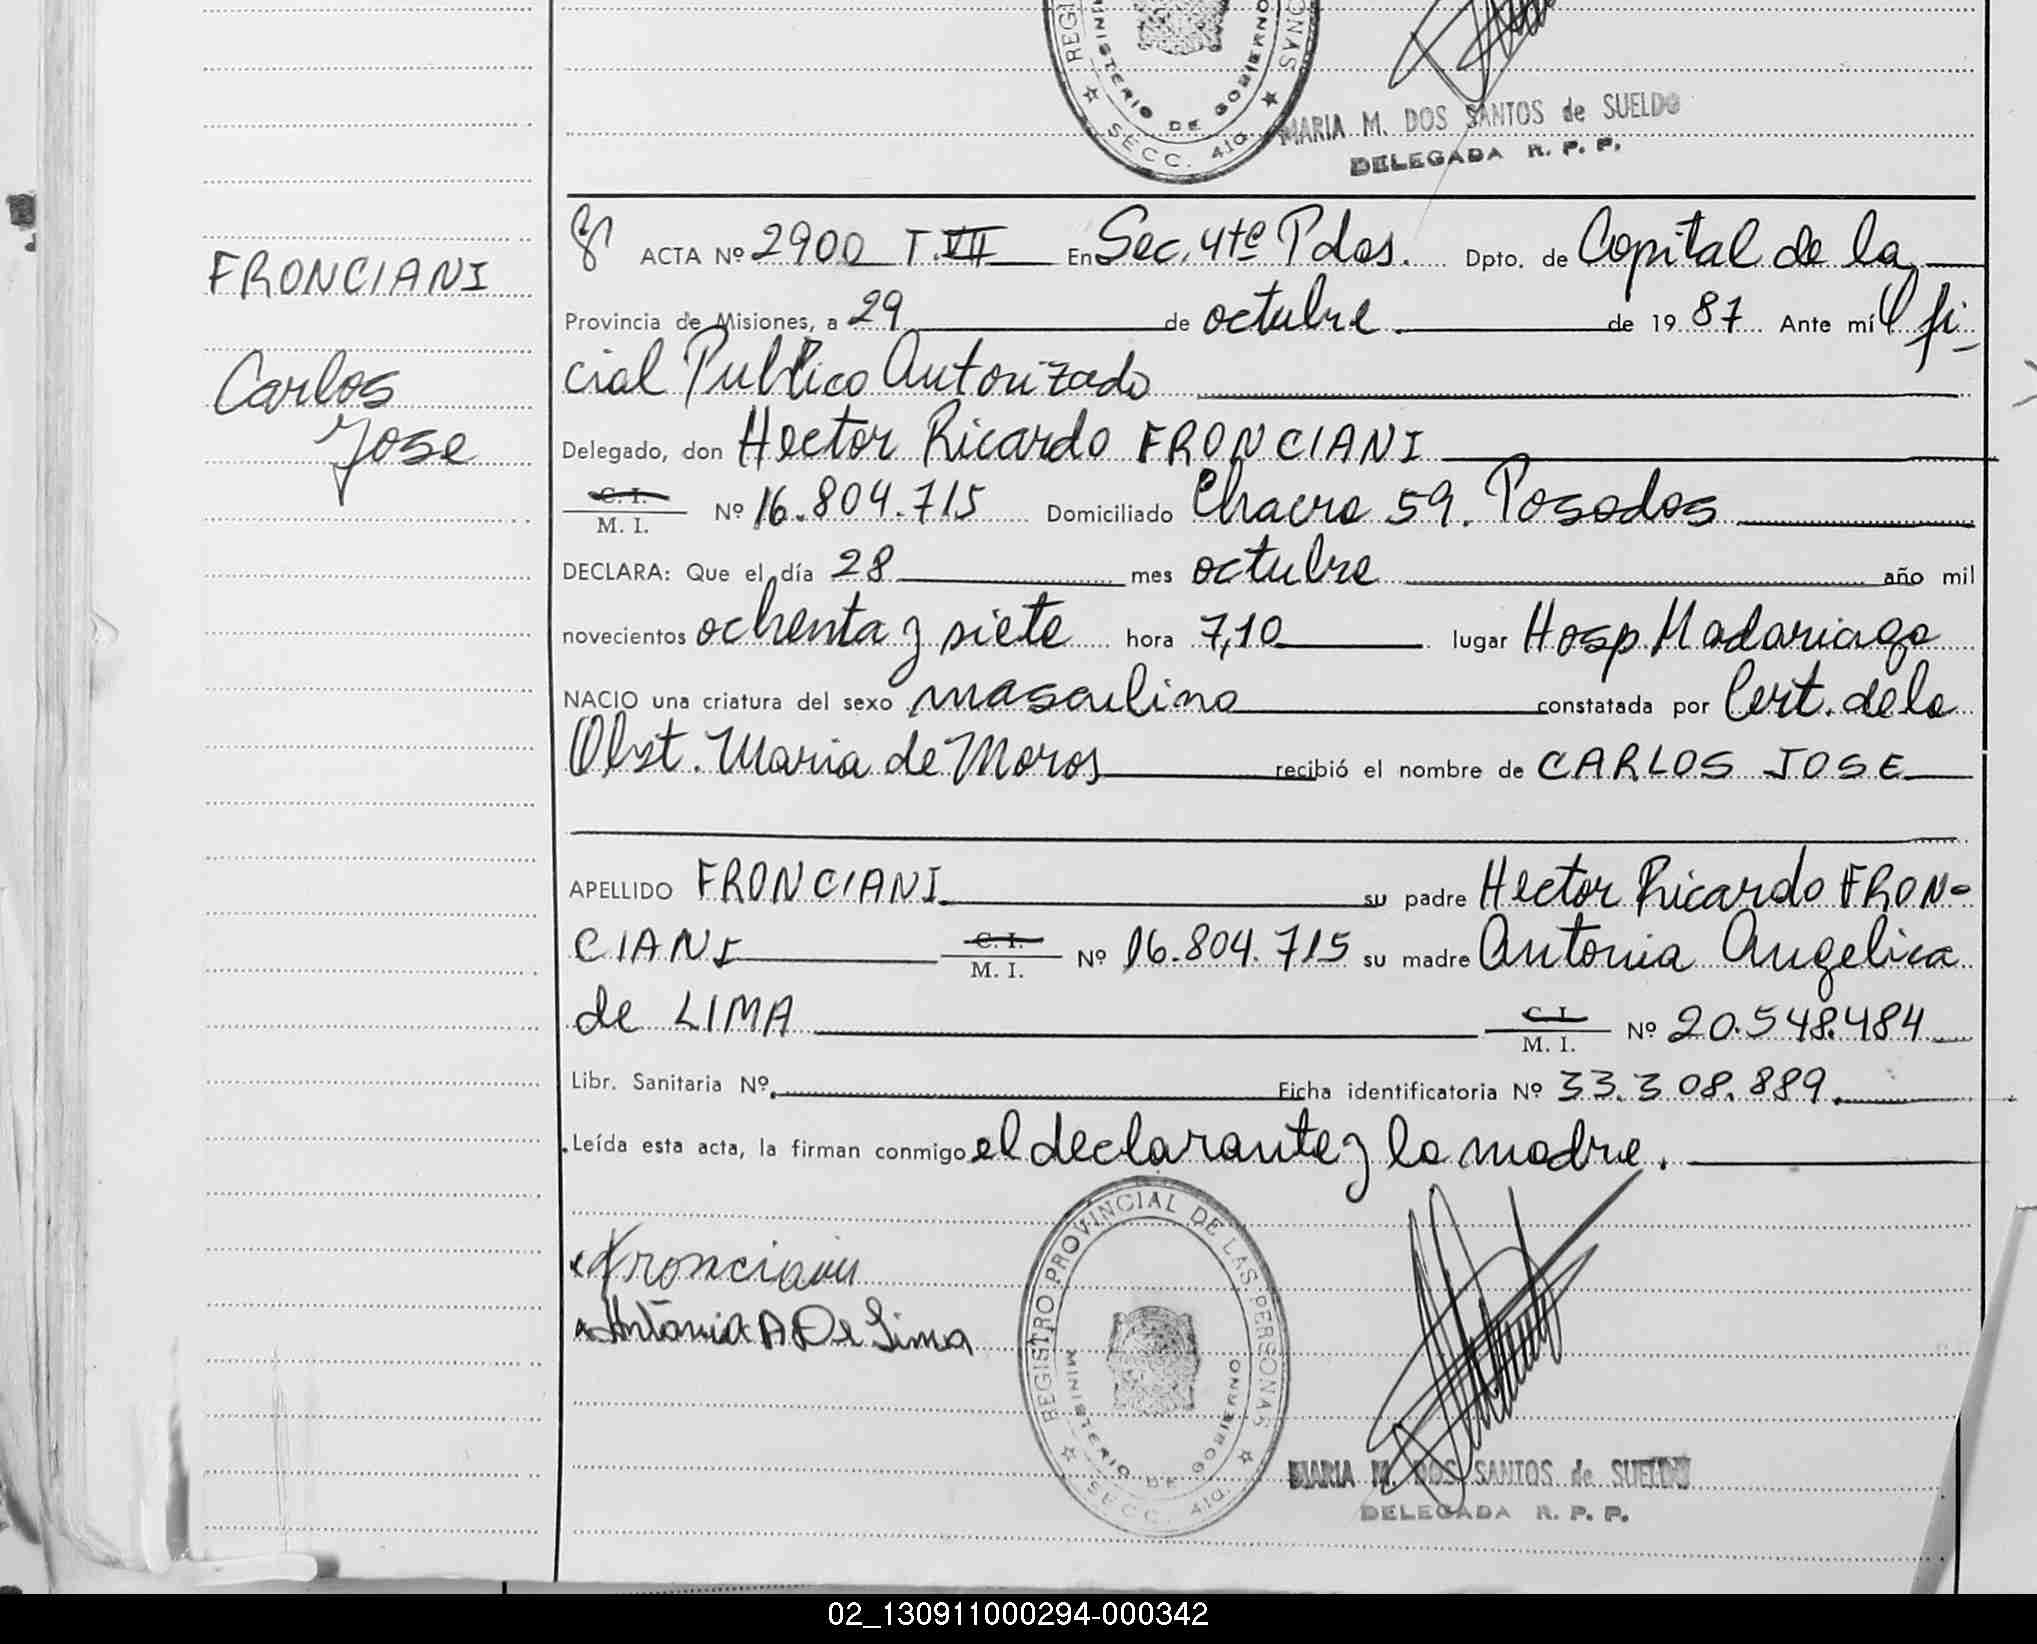 REGI NAS
MINISTERIO DE GOBIERNO
SECC. 4ta.
MARIA M. DOS SANTOS de SUELDO
DELEGADA R. P. P.
FRONCIANI
Carlos
Jose
ACTA Nº 2900 T.VII En Sec. 4te Pdas. Dpto. de Capital de la
Provincia de Misiones, a 29 de octubre de 1987 Ante mí Ofi-
cial Publico Autorizado
Delegado, don Hector Ricardo FRONCIANI
C. I.
M. I. Nº 16.804.715 Domiciliado Chacra 59. Posadas
DECLARA: Que el día 28 mes octubre año mil
novecientos ochenta y siete hora 7,10 lugar Hosp. Madariaga
NACIO una criatura del sexo masculino constatada por Cert. de la
Obst. Maria de Moros recibió el nombre de CARLOS JOSE
APELLIDO FRONCIANI su padre Hector Ricardo FRON-
CIANI C. I.
M. I. Nº 16.804.715 su madre Antonia Angelica
de LIMA C. I.
M. I. Nº 20.548.484
Libr. Sanitaria Nº Ficha identificatoria Nº 33.308.889.
Leída esta acta, la firman conmigo el declarante y la madre.
Fronciani
Antonia A De Lima
REGISTRO PROVINCIAL DE LAS PERSONAS
MINISTERIO DE GOBIERNO
SECC. 4ta.
MARIA M. DOS SANTOS de SUELDO
DELEGADA R. P. P.
02_130911000294-000342